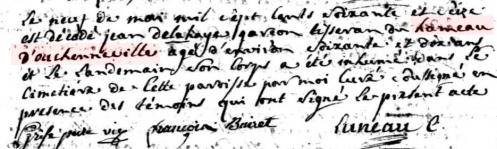 le neuf de mai mil sept cents soixante et seize
est décédé jean delahaye garçon tisseran du hameau
d'ouchenneville agé d'environ soixante et dix ans
et le landemain son corps a été inhumé dans le
cimetiere de cette paroisse par moi curé soussigné en
presence des témoins qui ont signé le présent acte
françois Buret Luneau C